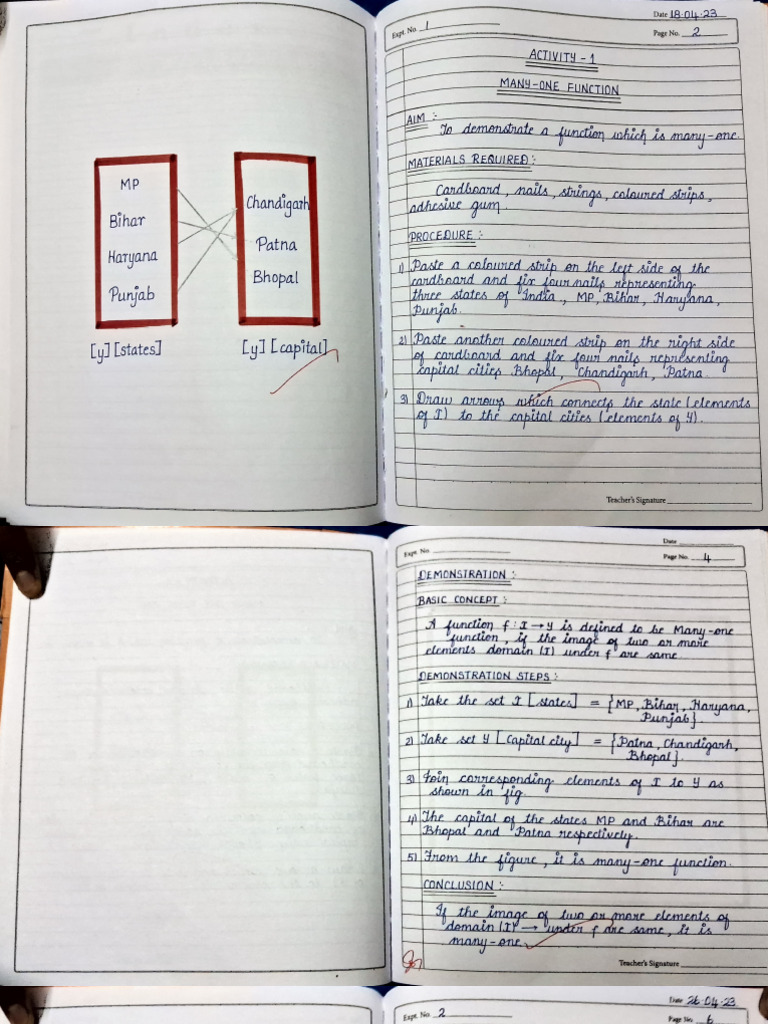 MP
Bihar
Haryana
Punjab
Chandigarh
Patna
Bhopal
[y] [states]
[y] [capital]
Date 18.04.23
Expt. No. 1
Page No. 2
ACTIVITY - 1
MANY-ONE FUNCTION
AIM :
To demonstrate a function which is many-one.
MATERIALS REQUIRED :
Cardboard, nails, strings, coloured strips,
adhesive gum.
PROCEDURE :
1) Paste a coloured strip on the left side of the
cardboard and fix four nails representing
three states of India, MP, Bihar, Haryana,
Punjab.
2) Paste another coloured strip on the right side
of cardboard and fix four nails representing
capital cities Bhopal, Chandigarh, Patna.
3) Draw arrows which connects the state (elements
of X) to the capital cities (elements of Y).
Teacher's Signature
Date
Expt. No.
Page No. 4
DEMONSTRATION :
BASIC CONCEPT :
A function f : X → Y is defined to be Many-one
function, if the image of two or more
elements domain (X) under f are same.
DEMONSTRATION STEPS :
1) Take the set X [states] = {MP, Bihar, Haryana,
Punjab}.
2) Take set Y [Capital city] = {Patna, Chandigarh,
Bhopal}.
3) Join corresponding elements of X to Y as
shown in fig.
4) The capital of the states MP and Bihar are
Bhopal and Patna respectively.
5) From the figure, it is many-one function.
CONCLUSION :
If the image of two or more elements of
domain (X) → under f are same, it is
many-one.
Teacher's Signature
Date 26.04.23
Expt. No. 2
Page No. 6